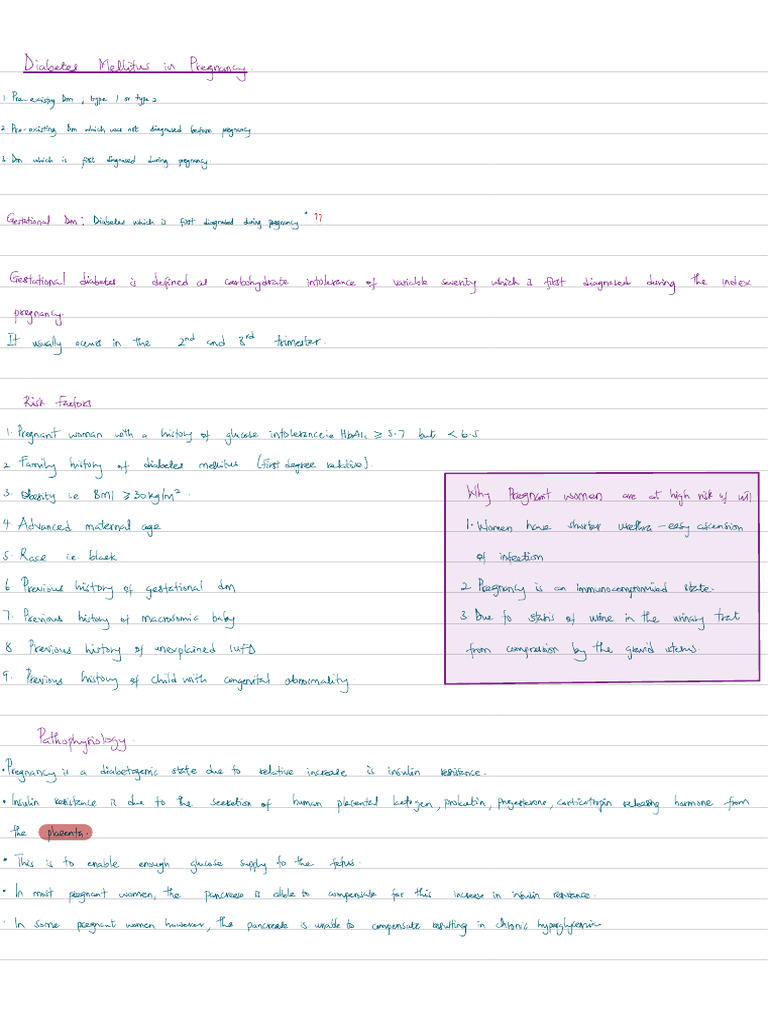 Diabetes Mellitus in Pregnancy.
1. Pre-existing Dm, type 1 or type 2
2. Pre-existing Dm which was not diagnosed before pregnancy
3. Dm which is first diagnosed during pregnancy.
Gestational Dm: Diabetes which is first diagnosed during pregnancy * ??
Gestational diabetes is defined as carbohydrate intolerance of variable severity which is first diagnosed during the index
pregnancy.
It usually occurs in the 2nd and 3rd trimester.
Risk Factors
1. Pregnant woman with a history of glucose intolerance i.e HbA1c ≥ 5.7 but < 6.5
2. Family history of diabetes mellitus (first degree relative).
3. Obesity i.e BMI ≥ 30kg/m².
4. Advanced maternal age
5. Race i.e. black
6. Previous history of gestational dm
7. Previous history of macrosomic baby
8. Previous history of unexplained IUFD
9. Previous history of child with congenital abnormality.
Why Pregnant women are at high risk of UTI
1. Women have shorter urethra - easy ascension
of infection
2. Pregnancy is an immunocompromised state.
3. Due to stasis of urine in the urinary tract
from compression by the gravid uterus.
Pathophysiology.
• Pregnancy is a diabetogenic state due to relative increase is insulin resistance.
• Insulin resistance is due to the secretion of human placental lactogen, prolactin, progesterone, corticotropin releasing hormone from
the placenta.
• This is to enable enough glucose supply to the fetus.
• In most pregnant women, the pancreas is able to compensate for this increase in insulin resistance.
• In some pregnant women however, the pancreas is unable to compensate resulting in chronic hyperglycemia